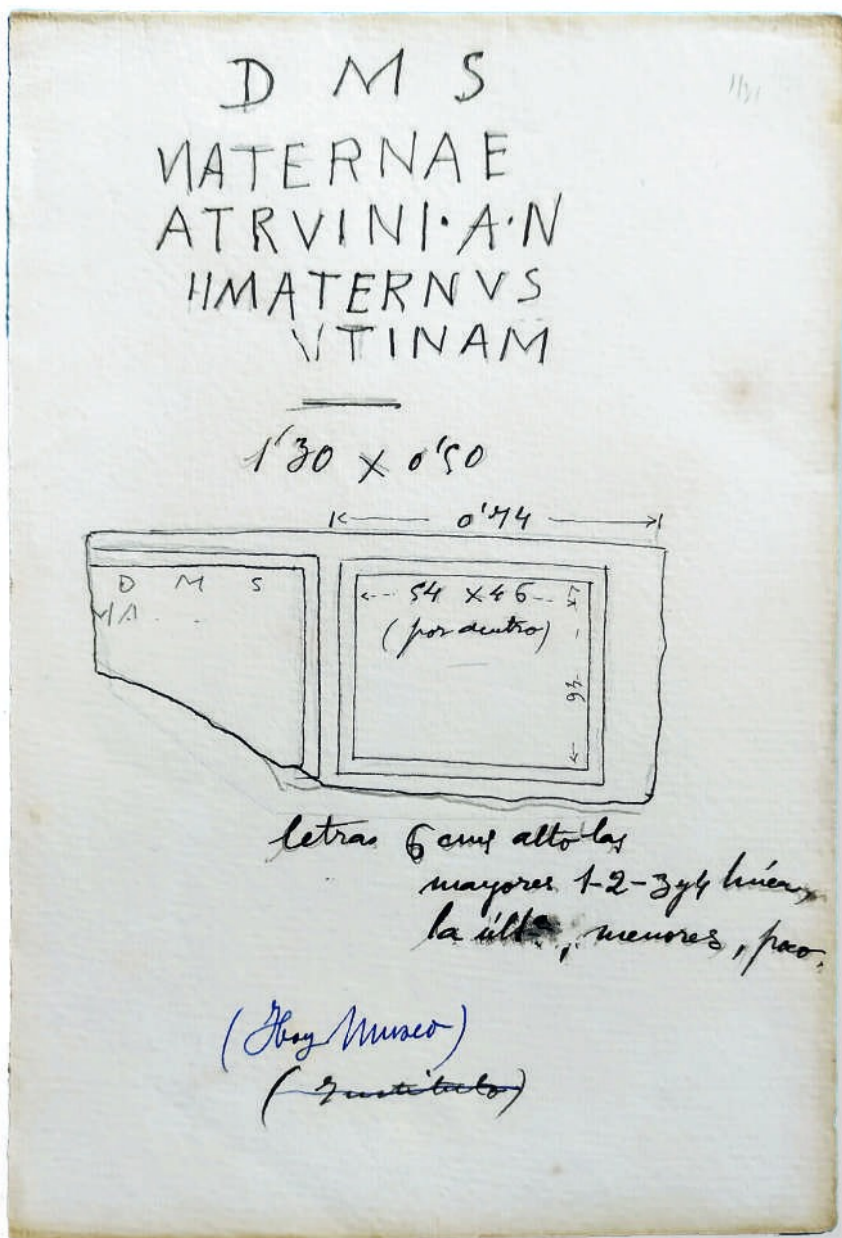 D M S
MATERNAE
ATRVINI·A·N
IIMATERNVS
VTINAM
1'30 x 0'50
0'74
D M S
MA
54 x 46
(por dentro)
46
letras 6 cms alto las
mayores 1-2-3 y 4 línea,
la últª, menores, poco.
(Hoy Museo)
(Instituto)